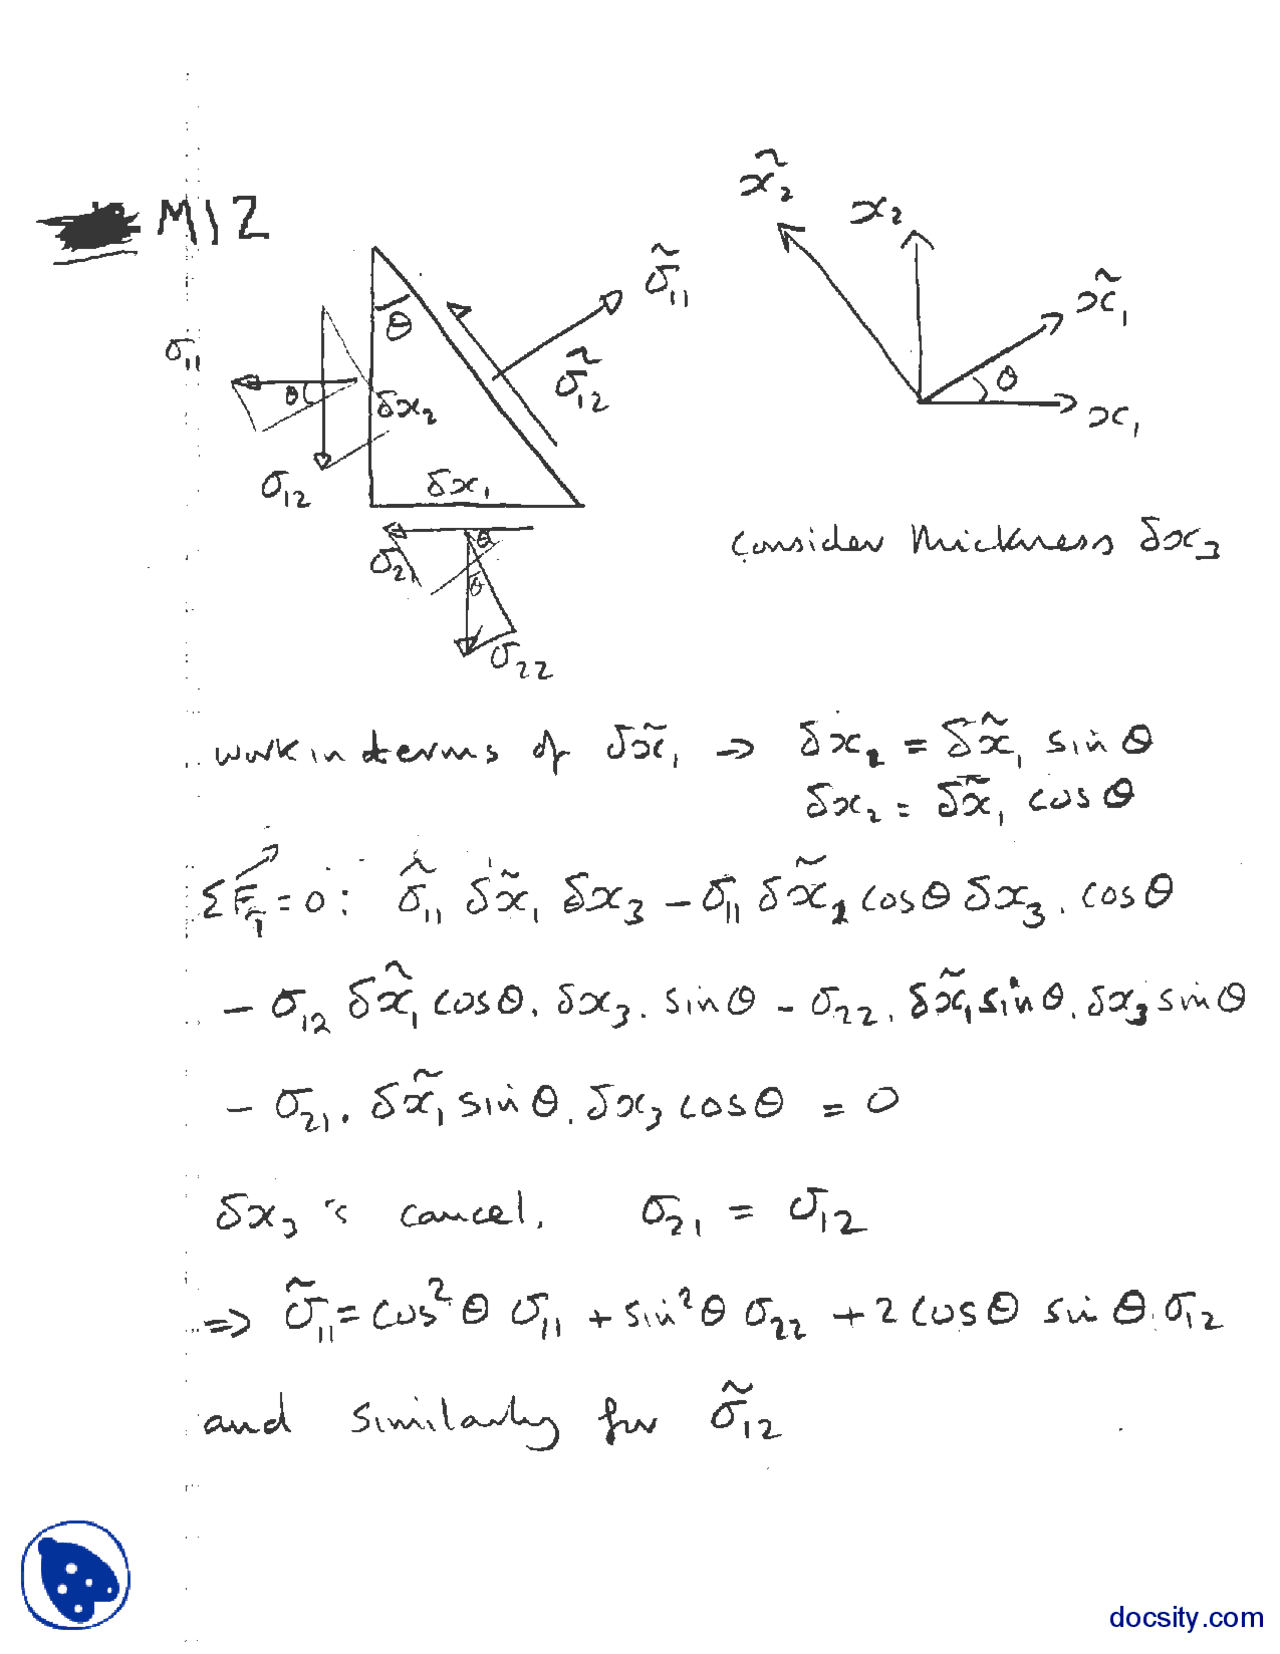 M12
x̃₂
x₂
x̃₁
θ
x₁
σ̃₁₁
θ
σ̃₁₂
σ₁₁
θ
δx₂
σ₁₂
δx₁
σ₂₁
θ
θ
σ₂₂
consider thickness δx₃
work in terms of δx̃₁ ⇒ δx₂ = δx̃₁ sin θ
δx₂ = δx̃₁ cos θ
ΣF₁̃ = 0 : σ̃₁₁ δx̃₁ δx₃ − σ₁₁ δx̃₂ cosθ δx₃ . cosθ
− σ₁₂ δx̃₁ cosθ. δx₃. sinθ − σ₂₂. δx̃₁ sinθ. δx₃ sinθ
− σ₂₁. δx̃₁ sinθ. δx₃ cosθ = 0
δx₃'s cancel. σ₂₁ = σ₁₂
⇒ σ̃₁₁ = cos²θ σ₁₁ + sin²θ σ₂₂ + 2 cosθ sinθ. σ₁₂
and similarly for σ̃₁₂
docsity.com